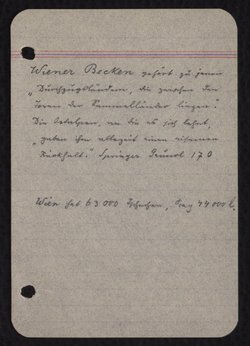 Wiener Becken gehört zu jenen
„Durchzugsländern, die zwischen den
Toren der Sammelländer liegen“.
Die Ostalpen, an die es sich lehnt,
„gaben ihm allezeit einen eisernen
Rückhalt.“ Springer Grundl 170
Wien hat 63 000 Tschechen, Prag 44 000 d.